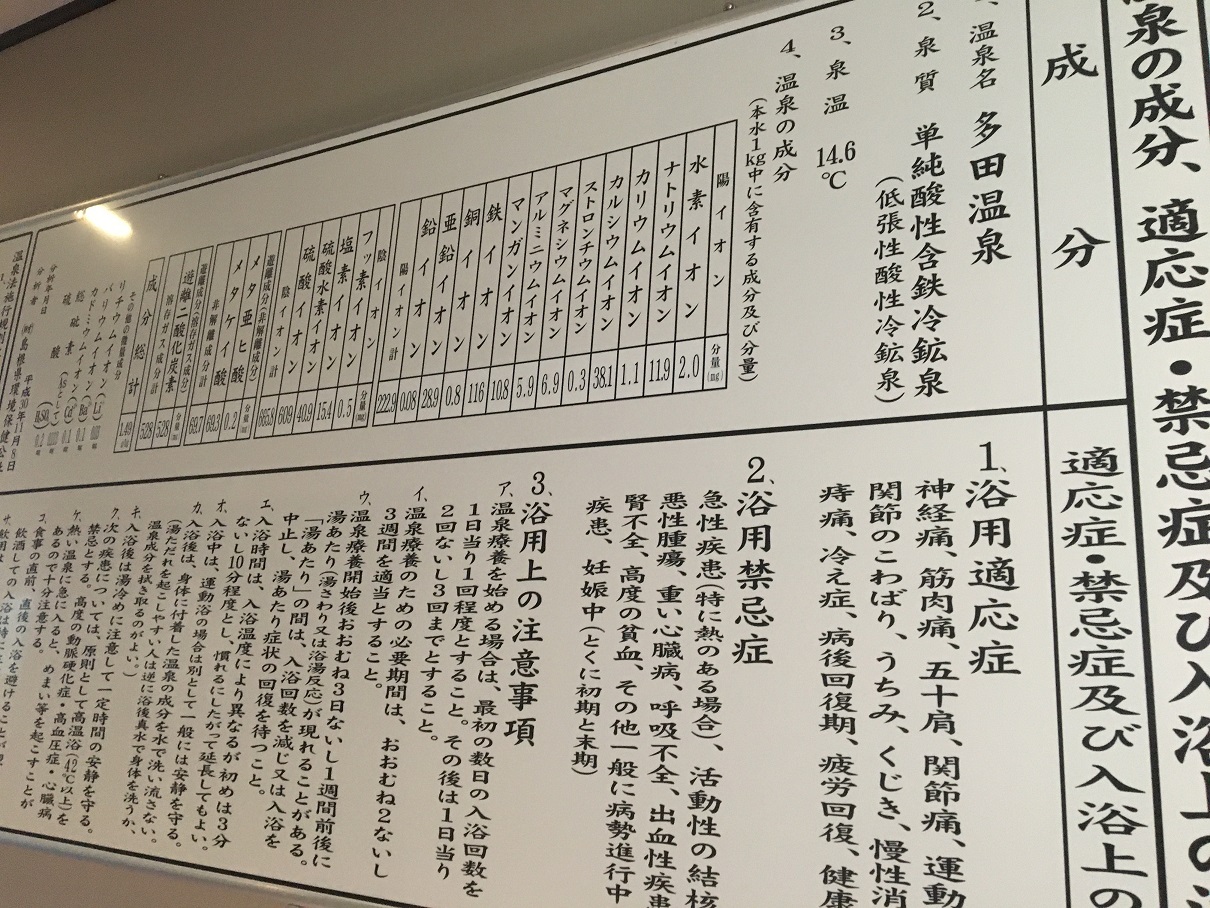 温泉の成分、適応症・禁忌症及び入浴上の
成分
温泉名 多田温泉
2、泉質 単純酸性含鉄冷鉱泉
(低張性酸性冷鉱泉)
3、泉温 14.6℃
4、温泉の成分
(本水1kg中に含有する成分及び分量)
陽イオン 分量(mg)
水素イオン 2.0
ナトリウムイオン 11.9
カリウムイオン 1.1
カルシウムイオン 38.1
ストロンチウムイオン 0.3
マグネシウムイオン 6.9
アルミニウムイオン 5.9
マンガンイオン 10.8
鉄イオン 116
銅イオン 0.8
亜鉛イオン 28.9
鉛イオン 0.08
陽イオン計 222.9
陰イオン 分量(mg)
フッ素イオン 0.5
塩素イオン 15.4
硫酸水素イオン 40.9
硫酸イオン 609
陰イオン計 665.8
遊離成分(非解離成分) 分量(mg)
メタ亜ヒ酸 0.2
メタケイ酸 69.3
非解離成分計 69.7
遊離成分(溶存ガス成分) 分量(mg)
遊離二酸化炭素 528
溶存ガス成分計 528
成分総計 1.49
その他の微量成分
リチウムイオン (Li)
バリウムイオン (Ba)
カドミウムイオン (Cd) 0.1
総硫素 (Asとして) 0.1
硫酸
分析年月日 平成30年11月8日
分析者 島根県環境保健公社
温泉法施行規則
適応症・禁忌症及び入浴上の
1、浴用適応症
神経痛、筋肉痛、五十肩、関節痛、運動
関節のこわばり、うちみ、くじき、慢性消
痔痛、冷え症、病後回復期、疲労回復、健康
2、浴用禁忌症
急性疾患(特に熱のある場合)、活動性の結核
悪性腫瘍、重い心臓病、呼吸不全、出血性疾患
腎不全、高度の貧血、その他一般に病勢進行中
疾患、妊娠中(とくに初期と末期)
3、浴用上の注意事項
ア、温泉療養を始める場合は、最初の数日の入浴回数を
1日当り1回程度とすること。その後は1日当り
2回ないし3回までとすること。
イ、温泉療養のための必要期間は、おおむね2ないし
3週間を適当とすること。
ウ、温泉療養開始後おおむね3日ないし1週間前後に
湯あたり(湯さわり又は浴湯反応)が現れることがある。
「湯あたり」の間は、入浴回数を減じ又は入浴を
中止し、湯あたり症状の回復を待つこと。
エ、入浴時間は、入浴温度により異なるが初めは3分
ないし10分程度とし、慣れるにしたがって延長してもよい。
オ、入浴中は、運動浴の場合は別として一般には安静を守る。
カ、入浴後は、身体に付着した温泉の成分を水で洗い流さない。
(湯ただれを起こしやすい人は逆に浴後真水で身体を洗うか、
温泉成分を拭き取るのがよい。)
キ、入浴後は湯冷めに注意して一定時間の安静を守る。
ク、次の疾患については、原則として高温浴(42℃以上)を
禁忌とする。高度の動脈硬化症・高血圧症・心臓病
ケ、熱い温泉に急に入ると、めまい等を起こすことが
あるので十分注意する。
コ、食事の直前、直後の入浴を避けることが
飲酒しての入浴は特に